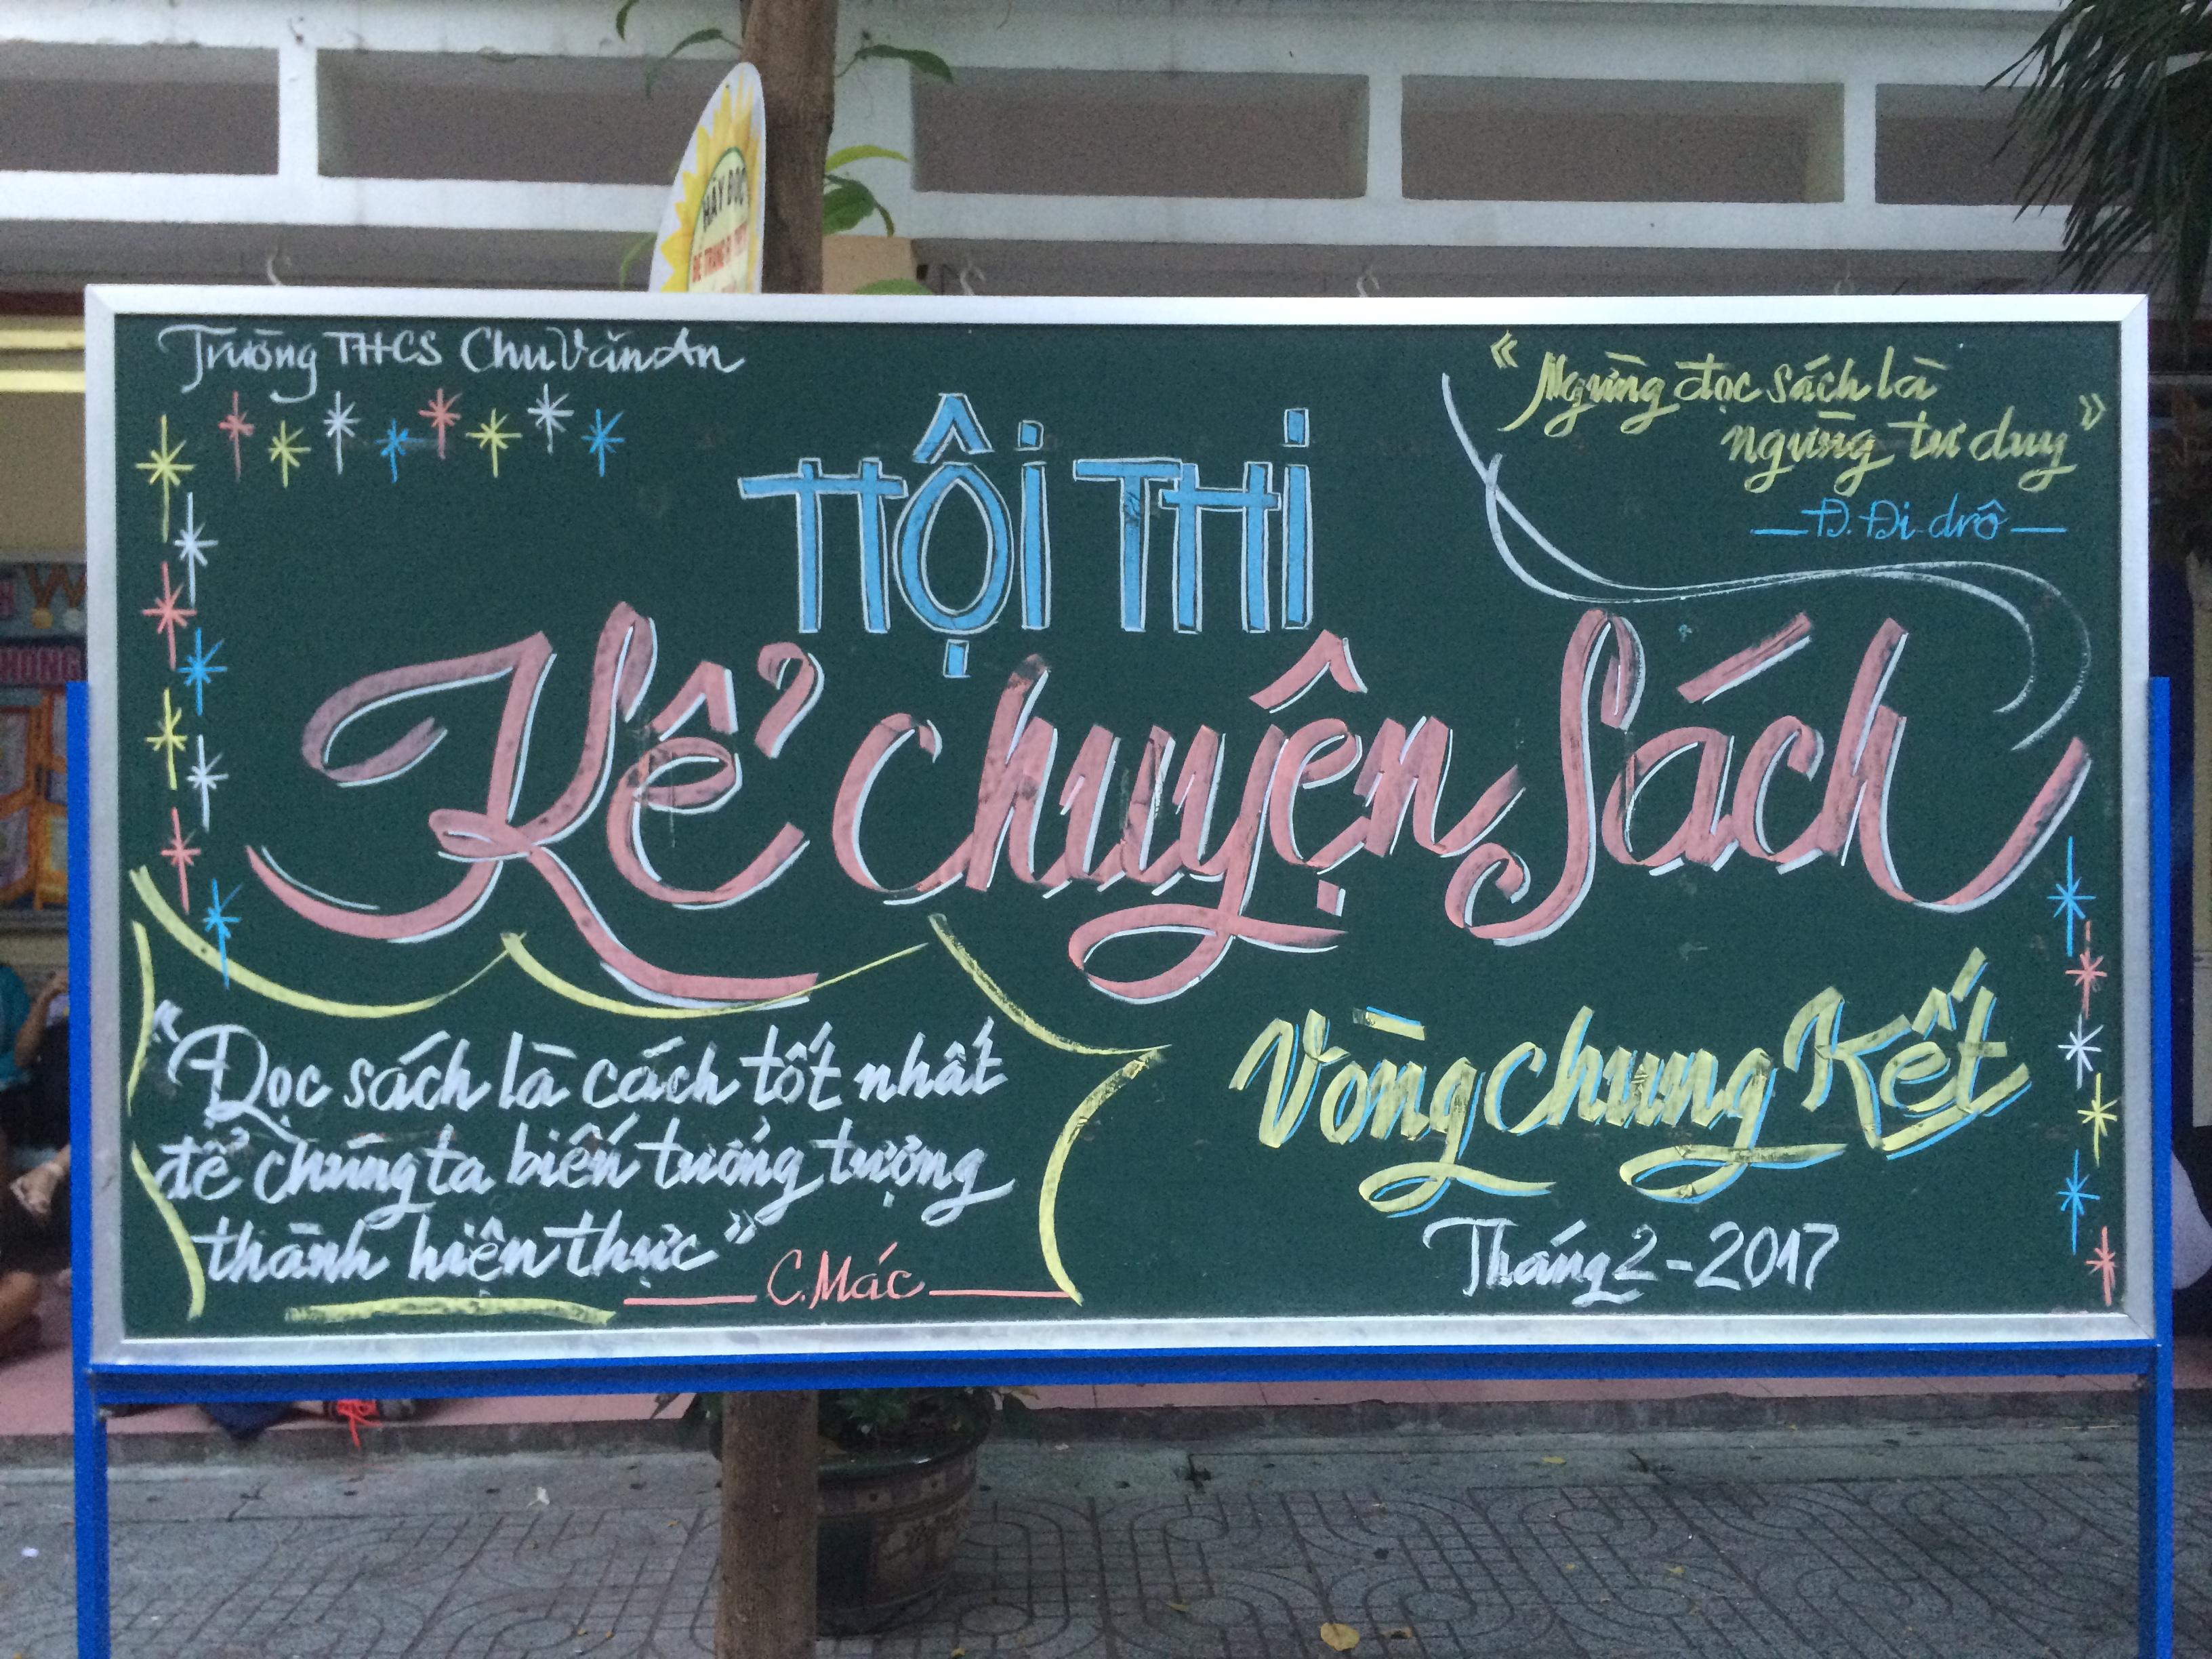 HÃY ĐỌC
Trường THCS Chu Văn An
« Ngừng đọc sách là
ngừng tư duy »
Đ. Đi-drô
HỘI THI
Kể chuyện Sách
"Đọc sách là cách tốt nhất
để chúng ta biến tưởng tượng
thành hiện thực"
C. Mác
Vòng chung Kết
Tháng 2 - 2017